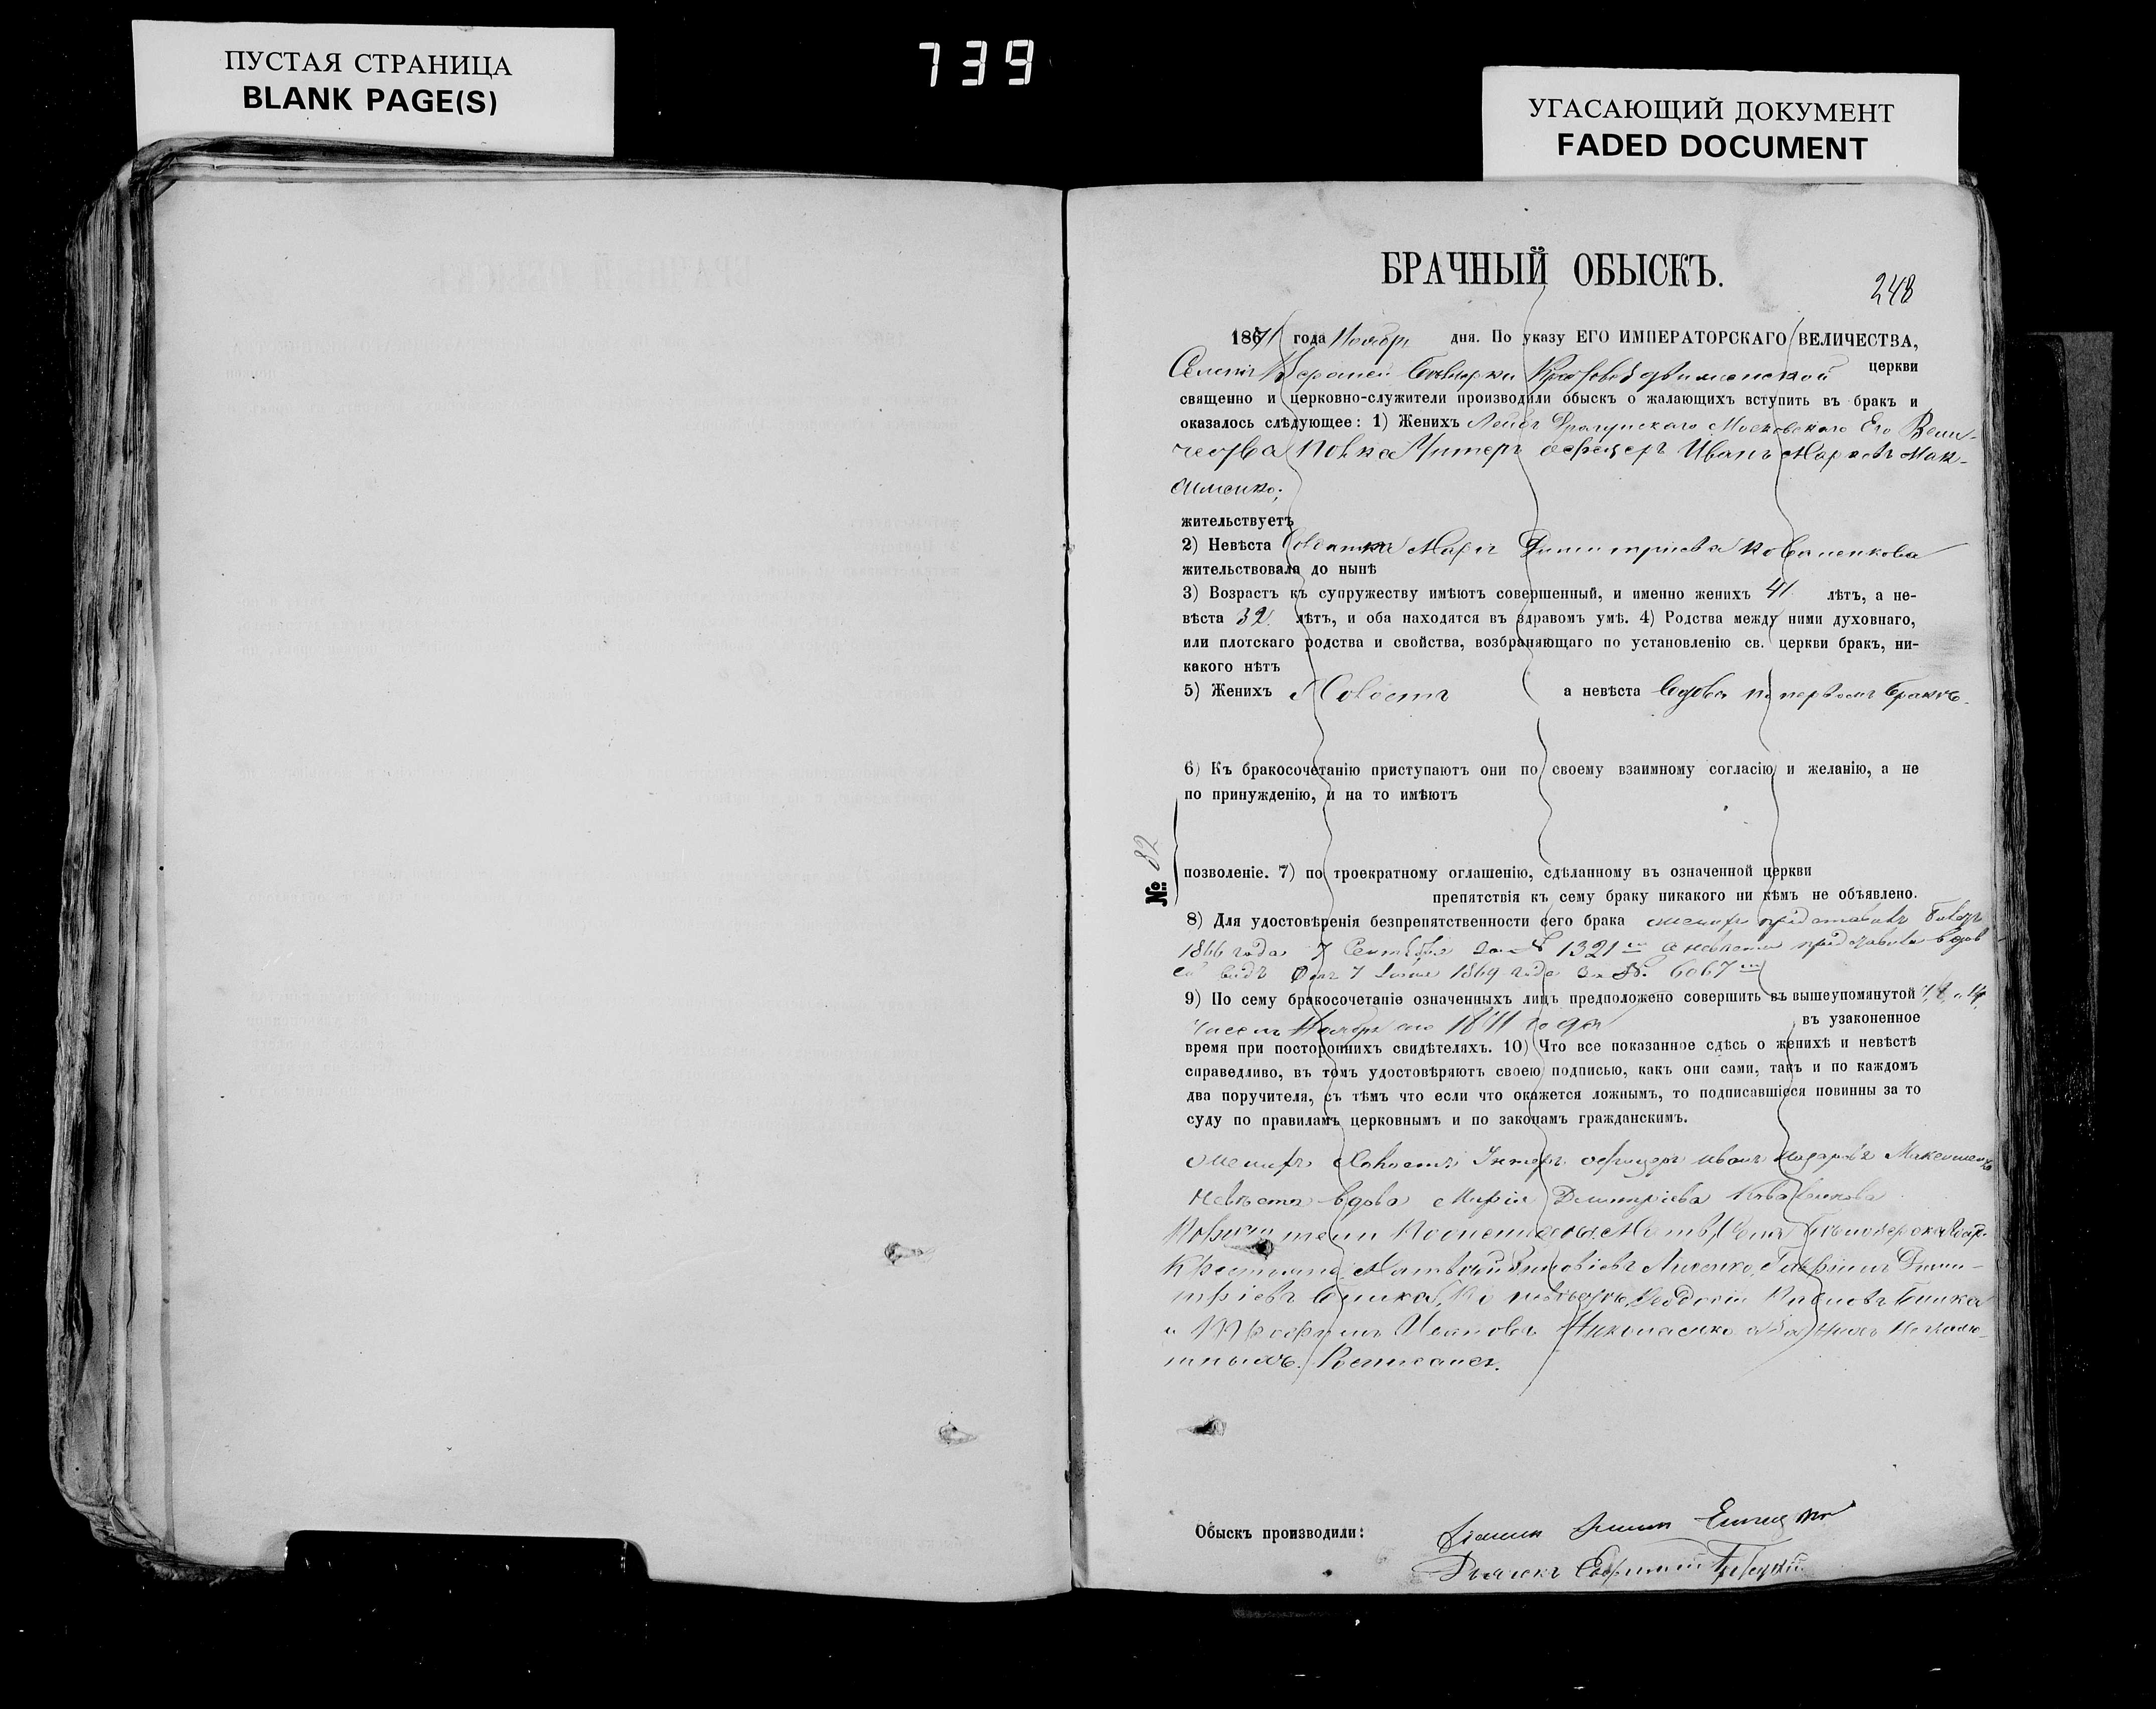 ПУСТАЯ СТРАНИЦА
BLANK PAGE(S)
739
УГАСАЮЩИЙ ДОКУМЕНТ
FADED DOCUMENT
БРАЧНЫЙ ОБЫСКЪ.
248
1871 года Ноября дня. По указу ЕГО ИМПЕРАТОРСКАГО ВЕЛИЧЕСТВА,
церкви
священно и церковно-служители производили обыскъ о жалающихъ вступить въ бракъ и
оказалось слѣдующее: 1) Женихъ Лейбъ Драгунскаго Московскаго Его Вели-
чества полка Унтеръ офицеръ Иванъ Мак-
сименко;
жительствуетъ
2) Невѣста Солдатка Марія Димитріева Коваленкова
жительствовала до нынѣ
3) Возрастъ къ супружеству имѣютъ совершенный, и именно женихъ 41 лѣтъ, а не-
вѣста 32 лѣтъ, и оба находятся въ здравомъ умѣ. 4) Родства между ними духовнаго,
или плотскаго родства и свойства, возбраняющаго по установленію св. церкви бракъ, ни-
какого нѣтъ
5) Женихъ Холостъ а невѣста Вдова по первомъ бракѣ.
6) Къ бракосочетанію приступаютъ они по своему взаимному согласію и желанію, а не
по принужденію, и на то имѣютъ
№ 82
позволеніе. 7) по троекратному оглашенію, сдѣланному въ означенной церкви
препятствія къ сему браку никакого ни кѣмъ не объявлено.
8) Для удостовѣренія безпрепятственности сего брака женихъ представилъ билетъ
1866 года 7 Сентября за № 1321 а невѣста представила вдов
ій видъ отъ 7 1869 года за №. 6067
9) По сему бракосочетаніе означенныхъ лицъ предположено совершить въ вышеупомянутой
Ноября 1871 года въ узаконенное
время при постороннихъ свидѣтеляхъ. 10) Что все показанное сдѣсь о женихѣ и невѣстѣ
справедливо, въ томъ удостовѣряютъ своею подписью, какъ они сами, такъ и по каждомъ
два поручителя, съ тѣмъ что если что окажется ложнымъ, то подписавшіеся повинны за то
суду по правиламъ церковнымъ и по законамъ гражданскимъ.
Женихъ Холостъ Унтеръ офицеръ Иванъ Максименко
Невѣста вдова Марія Димитріева Коваленкова
Поручители По женихѣ
Крестьяне Матвѣй Лисенко, Гавріилъ Дими-
тріевъ По невѣстѣ, Павловъ
и Трофимъ Ивановъ а за нихъ неграмо-
тныхъ Росписался.
Обыскъ производили:
Дьячекъ Евфимій